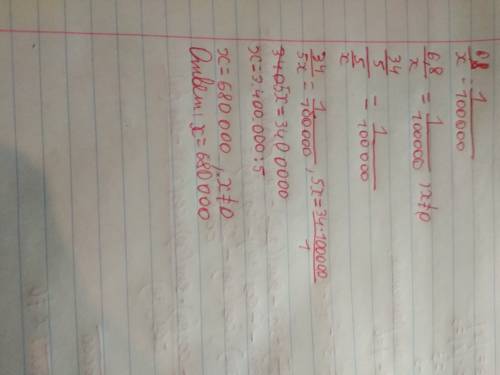 08/x = 1/100000
6,8/x = 1/100000, x≠0
34/5/x = 1/100000
34/5x = 1/100000, 5x = 34·100000/1
5x = 3400000
x = 3.400.000:5
x = 680 000, x≠0
Ответ: x = 680 000